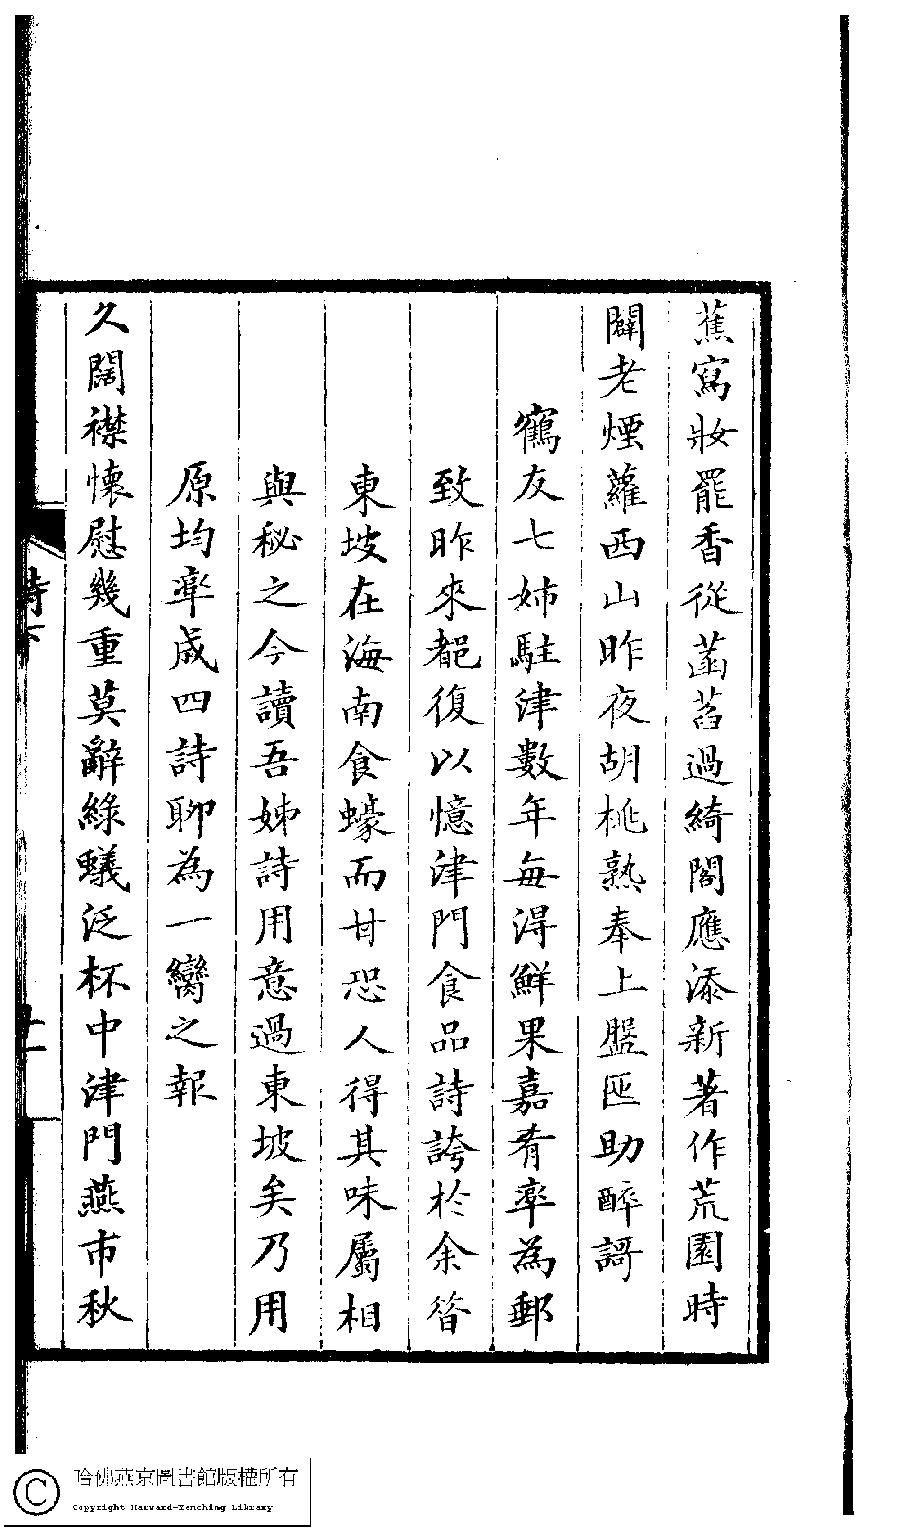 蕉寫妝罷香從菡萏過綺閣應添新著作荒園時
闢老煙蘿西山昨夜胡桃熟奉上盤匜助醉謌
鶴友七姊駐津數年每得鮮果嘉肴率為郵
致昨來都復以憶津門食品詩誇於余昝
東坡在海南食蠔而甘恐人得其味屬相
與秘之今讀吾姊詩用意過東坡矣乃用
原均率成四詩聊為一臠之報
久闊襟懷慰幾重莫辭綠蟻泛杯中津門燕市秋
詩下
十一
哈佛燕京圖書館版權所有
Copyright Harvard-Yenching Library